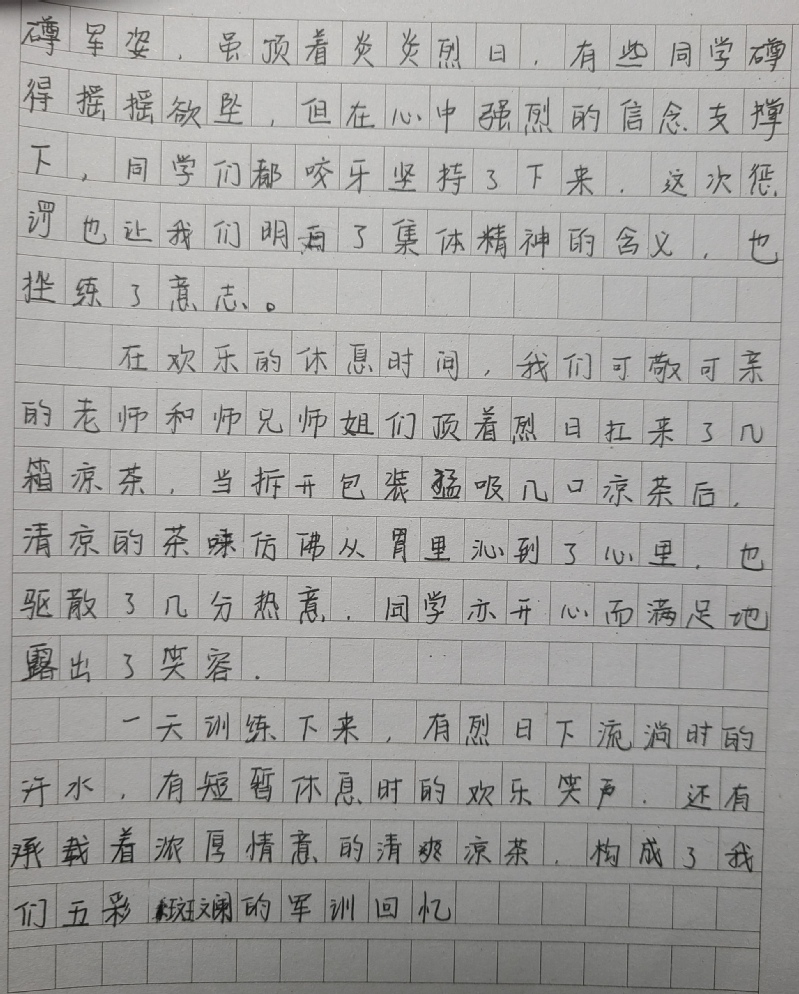 蹲军姿，虽顶着炎炎烈日，有些同学蹲
得摇摇欲坠，但在心中强烈的信念支撑
下，同学们都咬牙坚持了下来．这次惩
罚也让我们明白了集体精神的含义，也
挫练了意志。
在欢乐的休息时间，我们可敬可亲
的老师和师兄师姐们顶着烈日扛来了几
箱凉茶，当拆开包装猛吸几口凉茶后，
清凉的茶味仿佛从胃里沁到了心里．也
驱散了几分热意．同学亦开心而满足地
露出了笑容．
一天训练下来，有烈日下流淌时的
汗水，有短暂休息时的欢乐笑声．还有
承载着浓厚情意的清爽凉茶．构成了我
们五彩斑斓的军训回忆